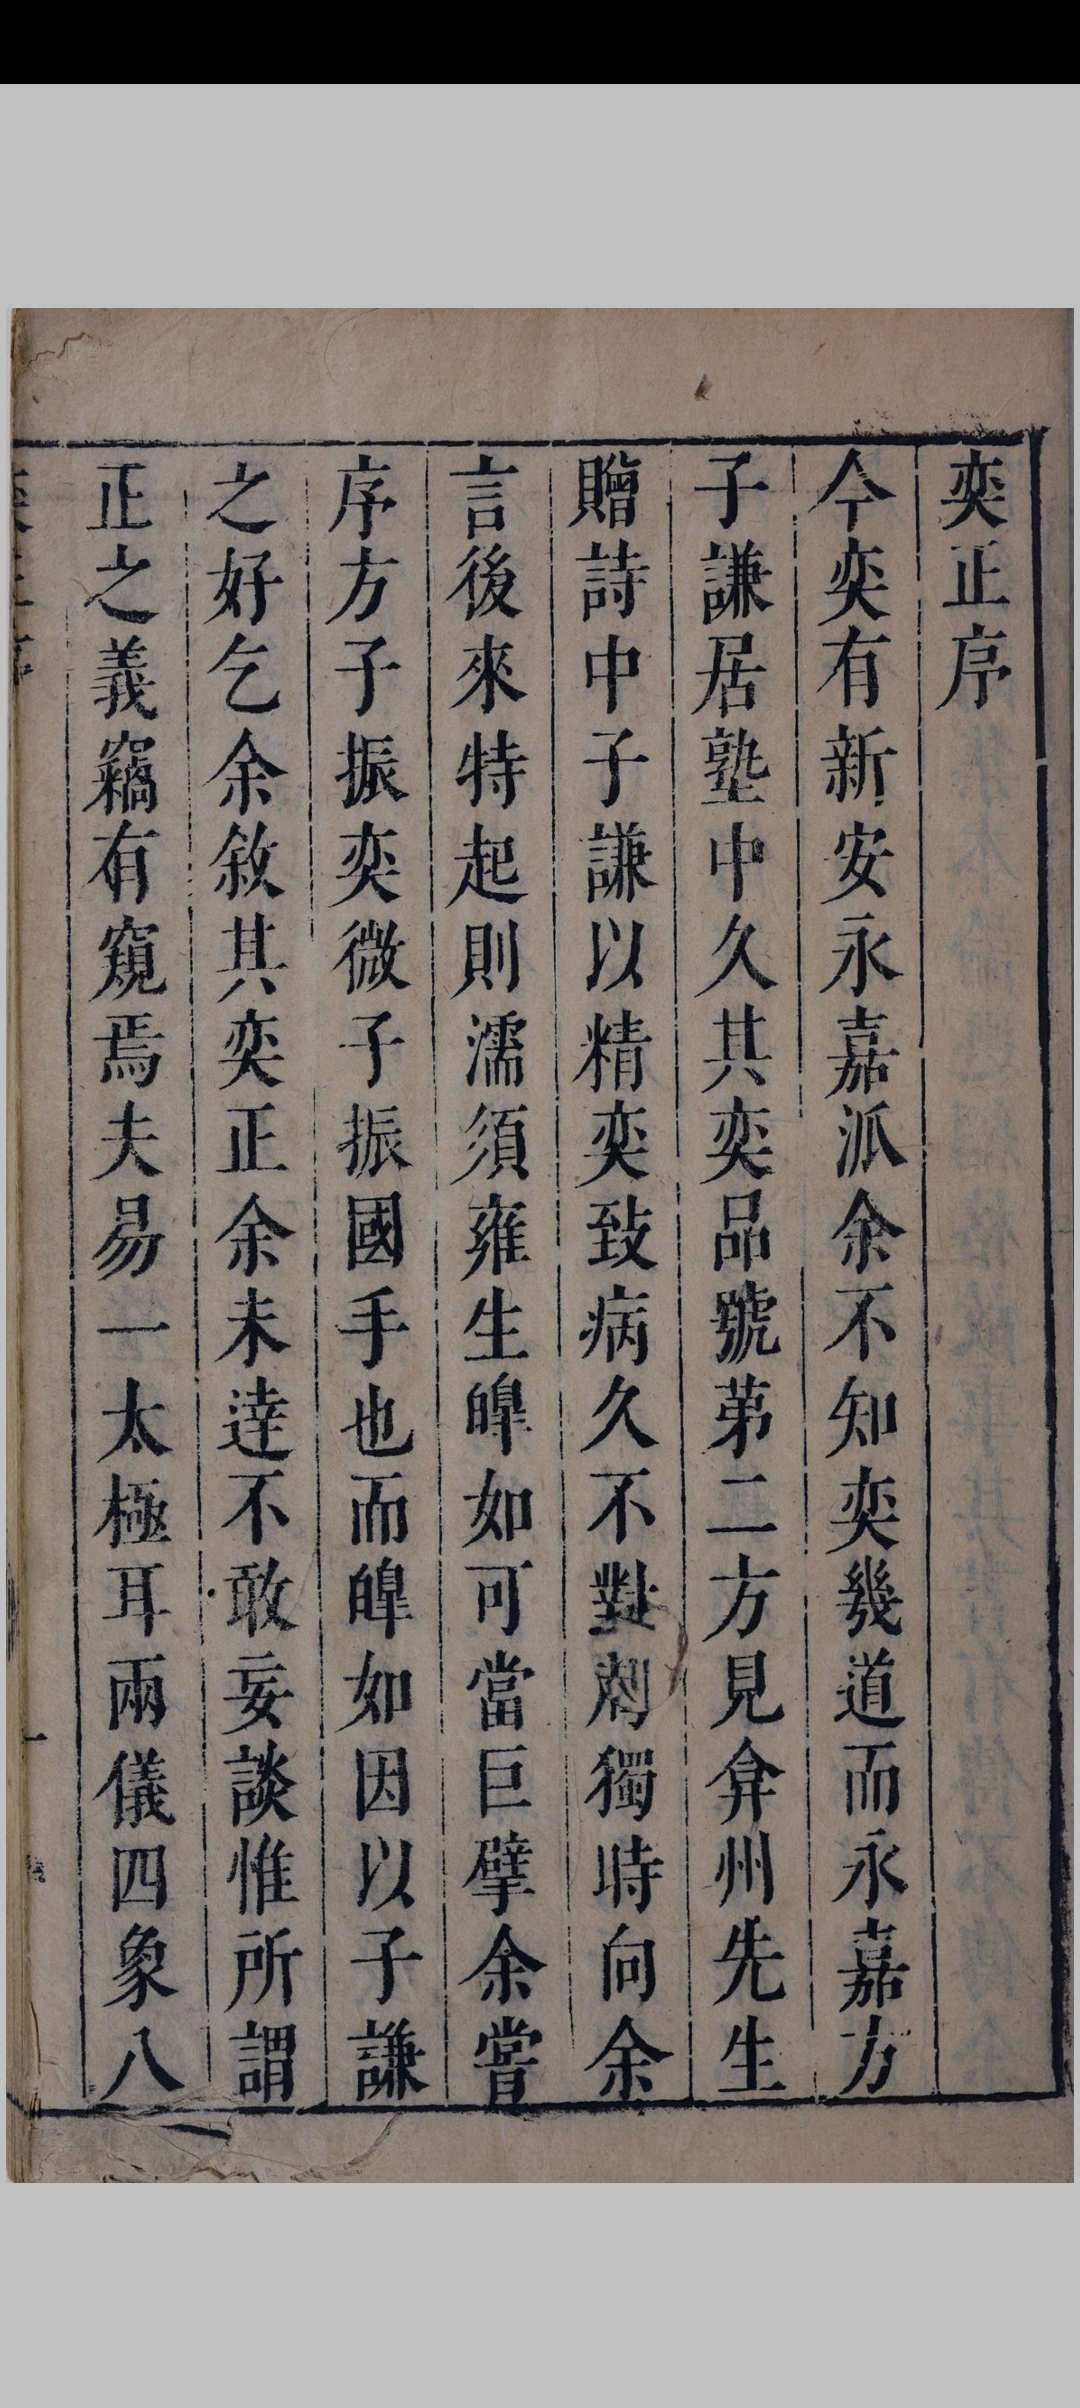 奕正序
今奕有新安永嘉派余不知奕幾道而永嘉方
子謙居塾中久其奕品號第二方見弇州先生
贈詩中子謙以精奕致病久不對劑獨時向余
言後來特起則濡須雍生皥如可當巨擘余嘗
序方子振奕微子振國手也而皥如因以子謙
之好乞余敘其奕正余未達不敢妄談惟所謂
正之義竊有窺焉夫易一太極耳兩儀四象八